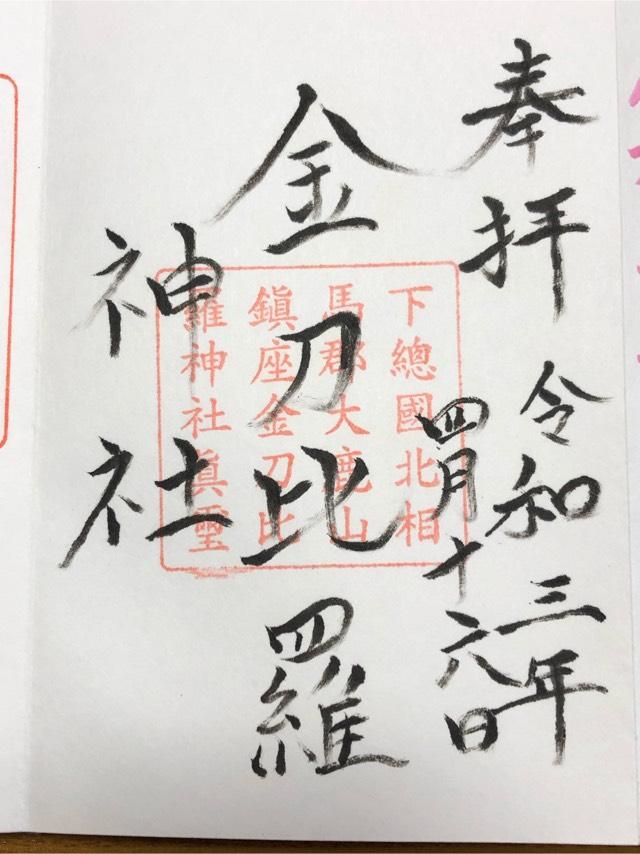 奉拝
令和三年
四月十六日
金刀比羅
神社
下總國北相
馬郡大鹿山
鎭座金刀比
羅神社眞璽